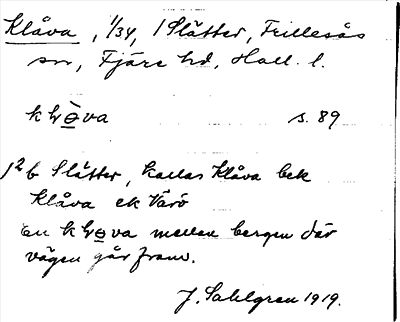 Klåva, 1/34, 1 Slätter, Frillesås
sn, Fjäre hd, Hall. l.
klo̱va s. 89
1 2 b Slätter, kallas Klåva bek
Klåva ek Värö
en klo̱va mellan bergen där
vägen går fram.
J. Sahlgren 1919.